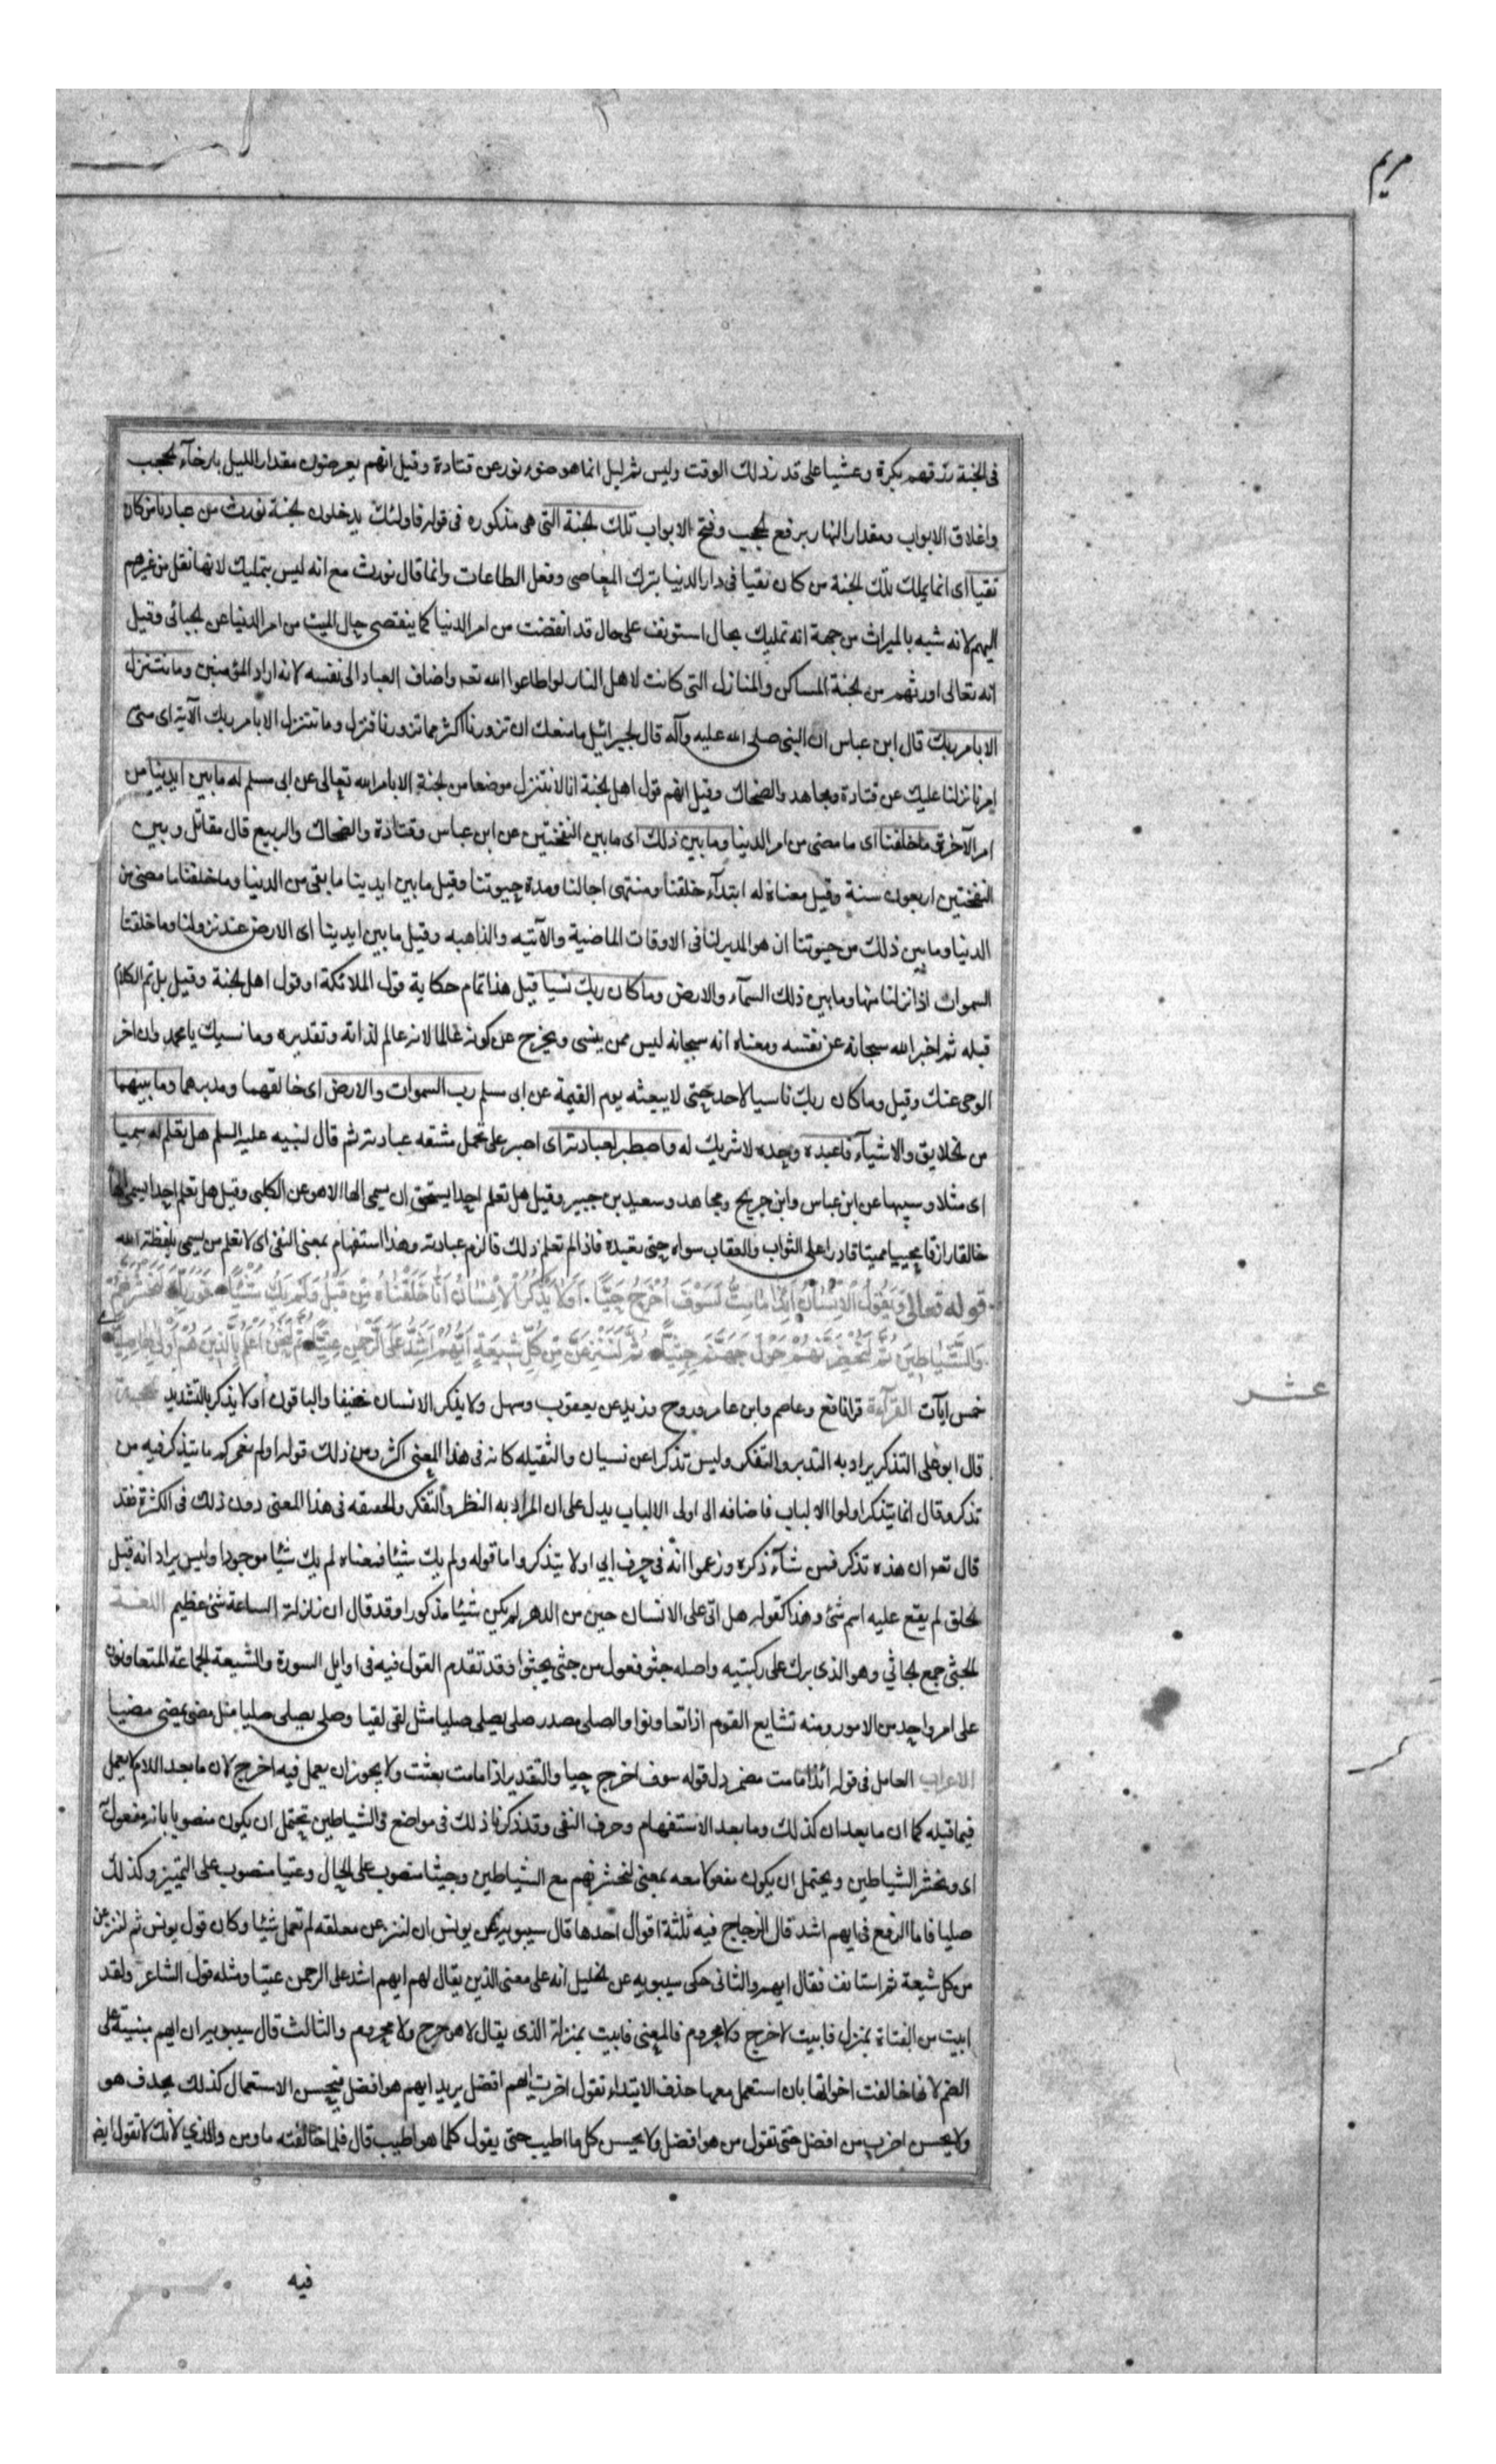 مريم
فى الجنة رزقهم بكرة وعشيا على قدر ذلك الوقت وليس ثم ليل انما هو ضوء ونور عن قتادة وقيل انهم يعرفون مقدار الليل بارخآء الحجب
واغلاق الابواب ومقدار النهار برفع الحجب وفتح الابواب تلك الجنة التى هى مذكوره فى قوله فاولئك يدخلون الجنة نورث من عبادنا من كان
تقيا اى انما يملك تلك الجنة من كان تقيا فى دار الدنيا بترك المعاصى وفعل الطاعات وانما قال نورث مع انه ليس بتمليك لانها نقل من غيرهم
اليهم لانه شبه بالميراث من جهة انه تمليك بحال استونف على حال قد انقضت من امر الدنيا كما ينقضى حال الميت من امر الدنيا عن الجبائى وقيل
انه تعالى اورثهم من الجنة المساكن والمنازل التى كانت لاهل النار لو اطاعوا الله تعه واضاف العباد الى نفسه لانه اراد المؤمنين وما نتنزل
الا بامر ربك قال ابن عباس ان النبى صلى الله عليه وآله قال لجبرائيل ما منعك ان تزورنا اكثر مما تزورنا فنزل وما نتنزل الا بامر ربك الآية اى متى
امرنا نزلنا عليك عن قتادة ومجاهد والضحاك وقيل انهم قول اهل الجنة انا لا نتنزل موضعا من الجنة الا بامر الله تعالى عن ابى مسلم له ما بين ايدينا من
امر الآخرة وما خلفنا اى ما مضى من امر الدنيا وما بين ذلك اى ما بين النفختين عن ابن عباس وقتادة والضحاك والربيع قال مقاتل وبين
النفختين اربعون سنة وقيل معناه له ابتدآء خلقنا ومنتهى اجالنا ومدة حيوتنا وقيل ما بين ايدينا ما بقى من الدنيا وما خلفنا ما مضى من
الدنيا وما بين ذلك من حيوتنا ان هو المدبر لنا فى الاوقات الماضية والآتيه والذاهبه وقيل ما بين ايدينا اى الارض عند نزولنا وما خلفنا
السموات اذا نزلنا منها وما بين ذلك السمآء والارض وما كان ربك نسيا قيل هذا تمام حكاية قول الملائكة او قول اهل الجنة وقيل بل تم الكلام
قبله ثم اخبر الله سبحانه عن نفسه ومعناه انه سبحانه ليس ممن ينسى ويخرج عن كونه عالما لانه عالم لذاته وتقديره وما نسيك يا محمد وان اخر
الوحى عنك وقيل وما كان ربك ناسيا لاحد حتى لا يبعثه يوم القيمة عن ابى مسلم رب السموات والارض اى خالقهما ومدبرهما وما بينهما
من الخلايق والاشيآء فاعبده وحده لا شريك له واصطبر لعبادته اى اصبر على تحمل مشقه عبادته ثم قال لنبيه عليه السلم هل تعلم له سميا
اى مثلا وسبيها عن ابن عباس وابن جريح ومجاهد وسعيد بن جبير وقيل هل تعلم احدا يستحق ان يسمى الها الا هو عن الكلبى وقيل هل تعلم احدا يسمى الها
خالقا رازقا محييا مميتا قادرا على الثواب والعقاب سواه حتى تعبده فاذا لم تعلم ذلك فالزم عبادته وهذا استفهام بمعنى النفى اى لا تعلم من يسمى بلفظة الله
قوله تعالى وَيَقُولُ الْاِنْسَانُ اَئِذَا مَا مِتُّ لَسَوْفَ اُخْرَجُ حَيًّا اَوَلَا يَذْكُرُ الْاِنْسَانُ اَنَّا خَلَقْنَاهُ مِنْ قَبْلُ وَلَمْ يَكُ شَيْئًا فَوَرَبِّكَ لَنَحْشُرَنَّهُمْ
وَالشَّيَاطِينَ ثُمَّ لَنُحْضِرَنَّهُمْ حَوْلَ جَهَنَّمَ جِثِيًّا ثُمَّ لَنَنْزِعَنَّ مِنْ كُلِّ شِيعَةٍ اَيُّهُمْ اَشَدُّ عَلَى الرَّحْمٰنِ عِتِيًّا ثُمَّ لَنَحْنُ اَعْلَمُ بِالَّذِينَ هُمْ اَوْلَى بِهَا صِلِيًّا
عشر
خمس آيات القرآءة قرا نافع وعاصم وابن عامر وروح وزيد عن يعقوب وسهل ولا يذكر الانسان خفيفا والباقون اولا يذكر بالتشديد الحجة
قال ابو على التذكر يراد به التدبر والتفكر وليس تذكرا عن نسيان والثقيله كانه فى هذا المعنى اكثر ومن ذلك قوله اولم نعمركم ما يتذكر فيه من
تذكر وقال انما يتذكر اولوا الالباب فاضافه الى اولى الالباب يدل على ان المراد به النظر والتفكر والخفيفه فى هذا المعنى دون ذلك فى الكثرة فقد
قال تعه ان هذه تذكره فمن شآء ذكره وزعموا انه فى حرف ابى اولا يتذكر واما قوله ولم يك شيئا فمعناه لم يك شيئا موجودا وليس يراد انه قبل
الخلق لم يقع عليه اسم شئ وهذا كقوله هل اتى على الانسان حين من الدهر لم يكن شيئا مذكورا وقد قال ان زلزلة الساعة شئ عظيم اللغة
الجثى جمع الجاثي وهو الذى برك على ركبتيه واصله جثو فعول من جثى يجثوا وقد تقدم القول فيه فى اوايل السورة والشيعة الجماعة المتعاونون
على امر واحد من الامور ومنه تشايع القوم اذا تعاونوا والصلى مصدر صلى يصلى صليا مثل لقى لقيا وصلى يصلى صليا مثل مضى يمضى مضيا
الاعراب العامل فى قوله ائذا ما مت مضمر دل قوله سوف اخرج حيا والتقدير اذا ما مت بعثت ولا يجوز ان يعمل فيه اخرج لان ما بعد اللام لا يعمل
فيما قبله كما ان ما بعد ان كذلك وما بعد الاستفهام وحرف النفى وقد ذكرنا ذلك فى مواضع فى الشياطين يحتمل ان يكون منصوبا بانه مفعول به
اى ونحشر الشياطين ويحتمل ان يكون مفعولا معه بمعنى لنحشرنهم مع الشياطين وجيثا منصوب على الحال وعتيا منصوب على التميز وكذلك
صليا فاما الرفع فى ايهم اشد قال الزجاج فيه ثلثة اقوال احدها قال سيبويه عن يونس ان لننزعن معلقه لم تعمل شيئا وكان قول يونس ثم لننزعن
من كل شيعة ثم استانف فقال ايهم والثانى حكى سيبويه عن الخليل انه على معنى الذين يقال لهم ايهم اشد على الرحمن عتيا ومثله قول الشاعر ولقد
ابيت من الفتاة بمنزل فابيت لا حرج ولا محروم فالمعنى فابيت بمنزلة الذى يقال لا هو حرج ولا محروم والثالث قال سيبويه ان ايهم مبنية على
الضم لانها خالفت اخواتها بان استعمل معها حذف الابتداء تقول اضرب ايهم افضل يريد ايهم هو افضل فيحسن الاستعمال كذلك بحذف هو
ولا يحسن اضرب من افضل حتى تقول من هو افضل ولا يحسن كل ما اطيب حتى يقول كلما هو اطيب قال فلما خالفته ما ومن والذي لانك لا تقول ايضا
فيه